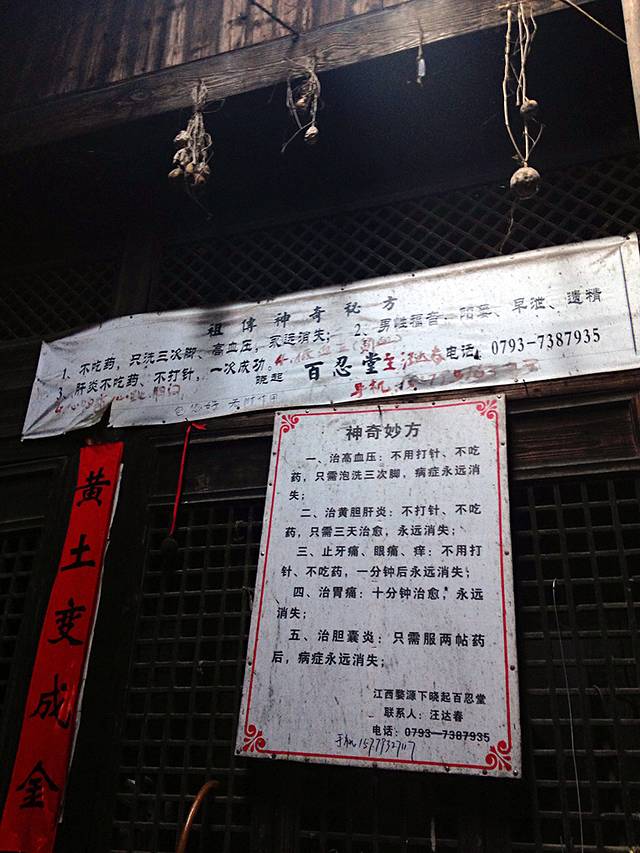 祖傳神奇秘方
1、不吃药，只洗三次脚、高血压，永远消失； 2、男性福音：阳萎、早泄、遗精
3、肝炎不吃药、不打针，一次成功。 晓起 百忍堂 主汪达春 电话：0793-7387935
手机：
包治好 无付作用
神奇妙方
一、治高血压：不用打针、不吃
药，只需泡洗三次脚，病症永远消
失；
二、治黄胆肝炎：不打针、不吃
药，只需三天治愈，永远消失；
三、止牙痛、眼痛、痒：不用打
针、不吃药，一分钟后永远消失；
四、治胃痛：十分钟治愈，永远
消失；
五、治胆囊炎：只需服两帖药
后，病症永远消失；
江西婺源下晓起百忍堂
联系人：汪达春
电话：0793-7387935
手机
黄土变成金